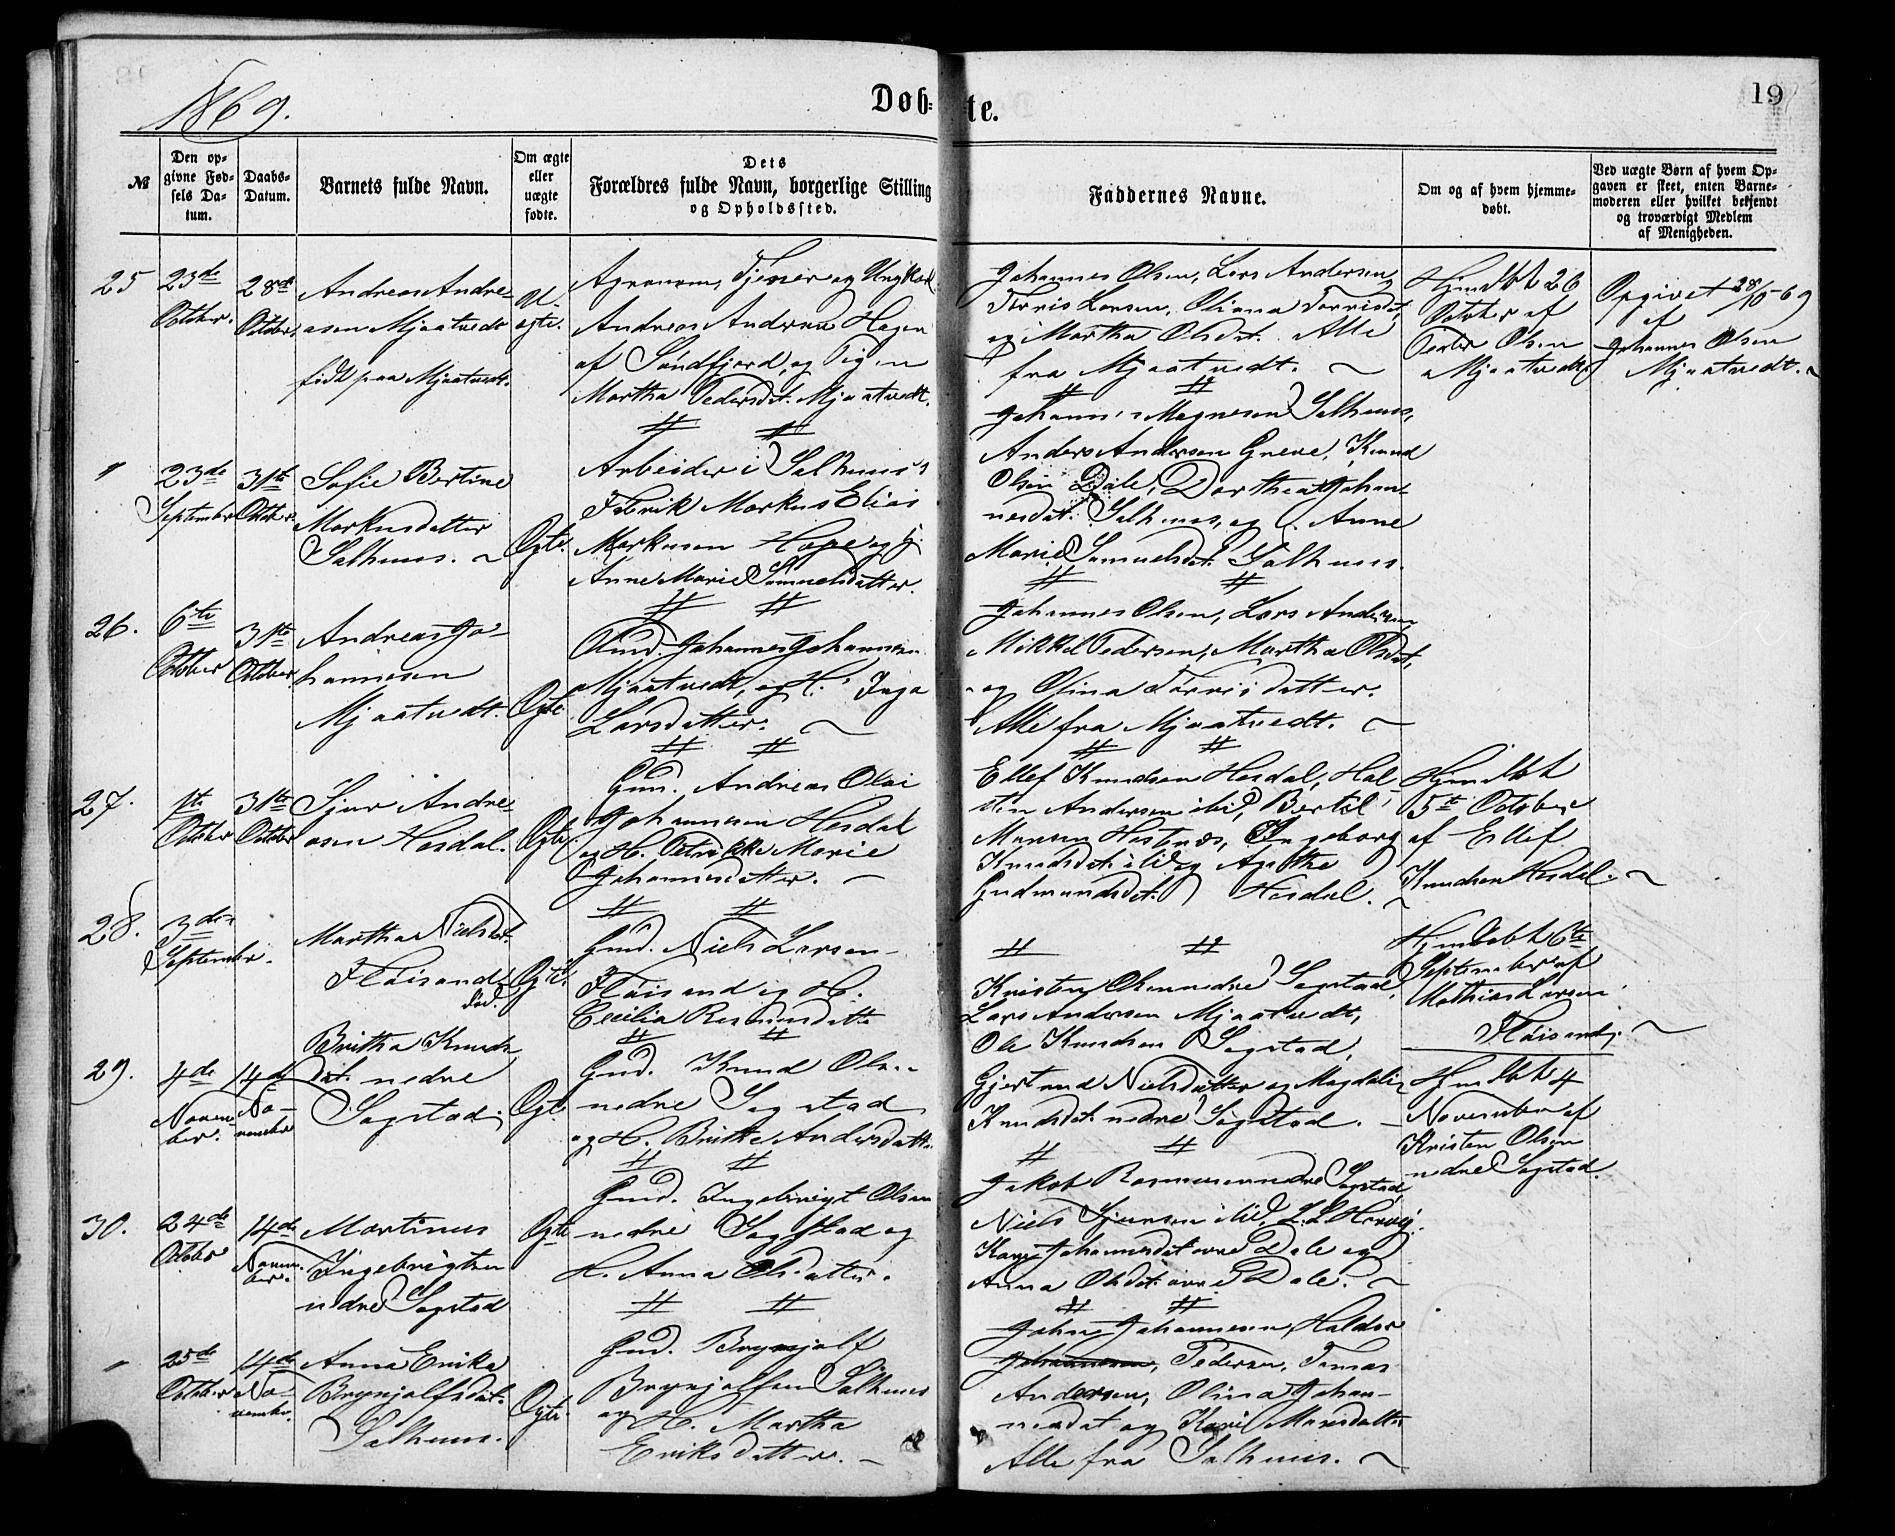 1869.
Døb-
te.
19
№
Den op-
givne Fød-
sels Da-
tum.
Daabs-
Datum.
Barnets fulde Navn.
Om ægte
eller
uægte
fødte.
Dets
Forældres fulde Navn, borgerlige Stilling
og Opholdssted.
Faddernes Navne.
Om og af hvem hjemme-
døbt.
Ved uægte Børn af hvem Op-
gaven er skeet, enten Barne-
moderen eller hvilket bekjendt
og troværdigt Medlem
af Menigheden.
25
23de
October.
28de
October
Andreas Andre-
asen Mjaatvedt
født paa Mjaatvedt.
U-
ægte.
Agronom, Tjener og Ungkarl
Andreas Andersen Hagen
af Søndfjord, og Pigen
Martha Pedersdt. Mjaatvedt.
Johannes Olsen, Lars Andersen,
Torris Larsen, Oliana Torrisdt.
og Martha Olsdt. Alle
fra Mjaatvedt.
Hjemdøbt 26
October af
Peder Olsen
Mjaatvedt
Opgivet 28/10 69
af
Johannes Olsen
Mjaatvedt.
"
23de
September
31te
October
Sofie Bertine
Markusdatter
Salhuus.
Ægte.
Arbeider i Salhuus's
Fabrik Markus Elias
Markusen Hope og H.
Anne Marie Samuelsdatter.
Johannes Magnesen Salhuus,
Anders Andersen Greve, Knud
Olsen Dale, Dorthea Johan-
nesdat. Salhuus, og Anne
Marie Samuelsdat. Salhuus.
26.
6te
October
31te
October.
Andreas Jo-
hannesen
Mjaatvedt.
Ægte
Gmd. Johannes Johannesen
Mjaatvedt, og H. Inga
Larsdatter.
Johannes Olsen, Lars Andersen,
Mikkel Pedersen, Martha Olsdt,
og Olina Torrisdatter.
Alle fra Mjaatvedt.
27.
1te
October
31te
October
Sjur Andre-
asen Hesdal.
Ægte.
Gmd. Andreas Olai
Johannesen Hesdal
og H. Petrikke Marie
Johannesdatter.
Ellef Knudsen Hesdal, Hal-
sten Andersen ibid, Bertil
Monsen Hestnes, Ingeborg
Knudsdt. ibid og Agathe
Gudmundsdt. Hesdal.
Hjemdøbt
5te October
af Ellef
Knudsen Hesdal.
28.
3die
September.
Martha Nielsdt.
Fløisand
død.
Ægte.
Gmd. Niels Larsen
Fløisand og H.
Cecilia Rasmusdatt.
Hjemdøbt 6te
September af
Mathias Larsen
Fløisand.
29.
4de
Novem-
ber.
14de
No-
vember
Britha Knuds-
dat. nedre
Sagstad.
Ægte
Gmd. Knud Olsen
nedre Sagstad
og H. Britha Andersdatt.
Kristen Olsen nedre Sagstad,
Lars Andersen Mjaatvedt,
Ole Knudsen Sagstad,
Gjertrud Nielsdatter og Magdali
Knudsdt. nedre Sagstad.
Hjemdøbt 4
November af
Kristen Olsen
nedre Sagstad.
30.
24de
October
14de
Novem-
ber.
Martinus
Ingebrigtsen
nedre Sagstad
Ægte
Gmd. Ingebrigt Olsen
nedre Sagstad og
H. Anna Olsdatter.
Jakob Rasmusen nedre Sagstad,
Niels Sjursen ibid, L. L. Hervig.
Kari Johannesdat øvre Dale og
Anna Olsdat. øvre Dale.
"
25de
October
14de
No-
vember.
Anna Erika
Brynjolfsdat.
Salhuus.
Ægte.
Gmd. Brynjolf
Brynjolfsen Salhuus
og H. Martha
Eriksdatter.
John Johannesen, Haldor
Johannesen, Pedersen, Tomas
Andersen, Olina Johan-
nesdat og Kari Monsdatter
Alle fra Salhuus.